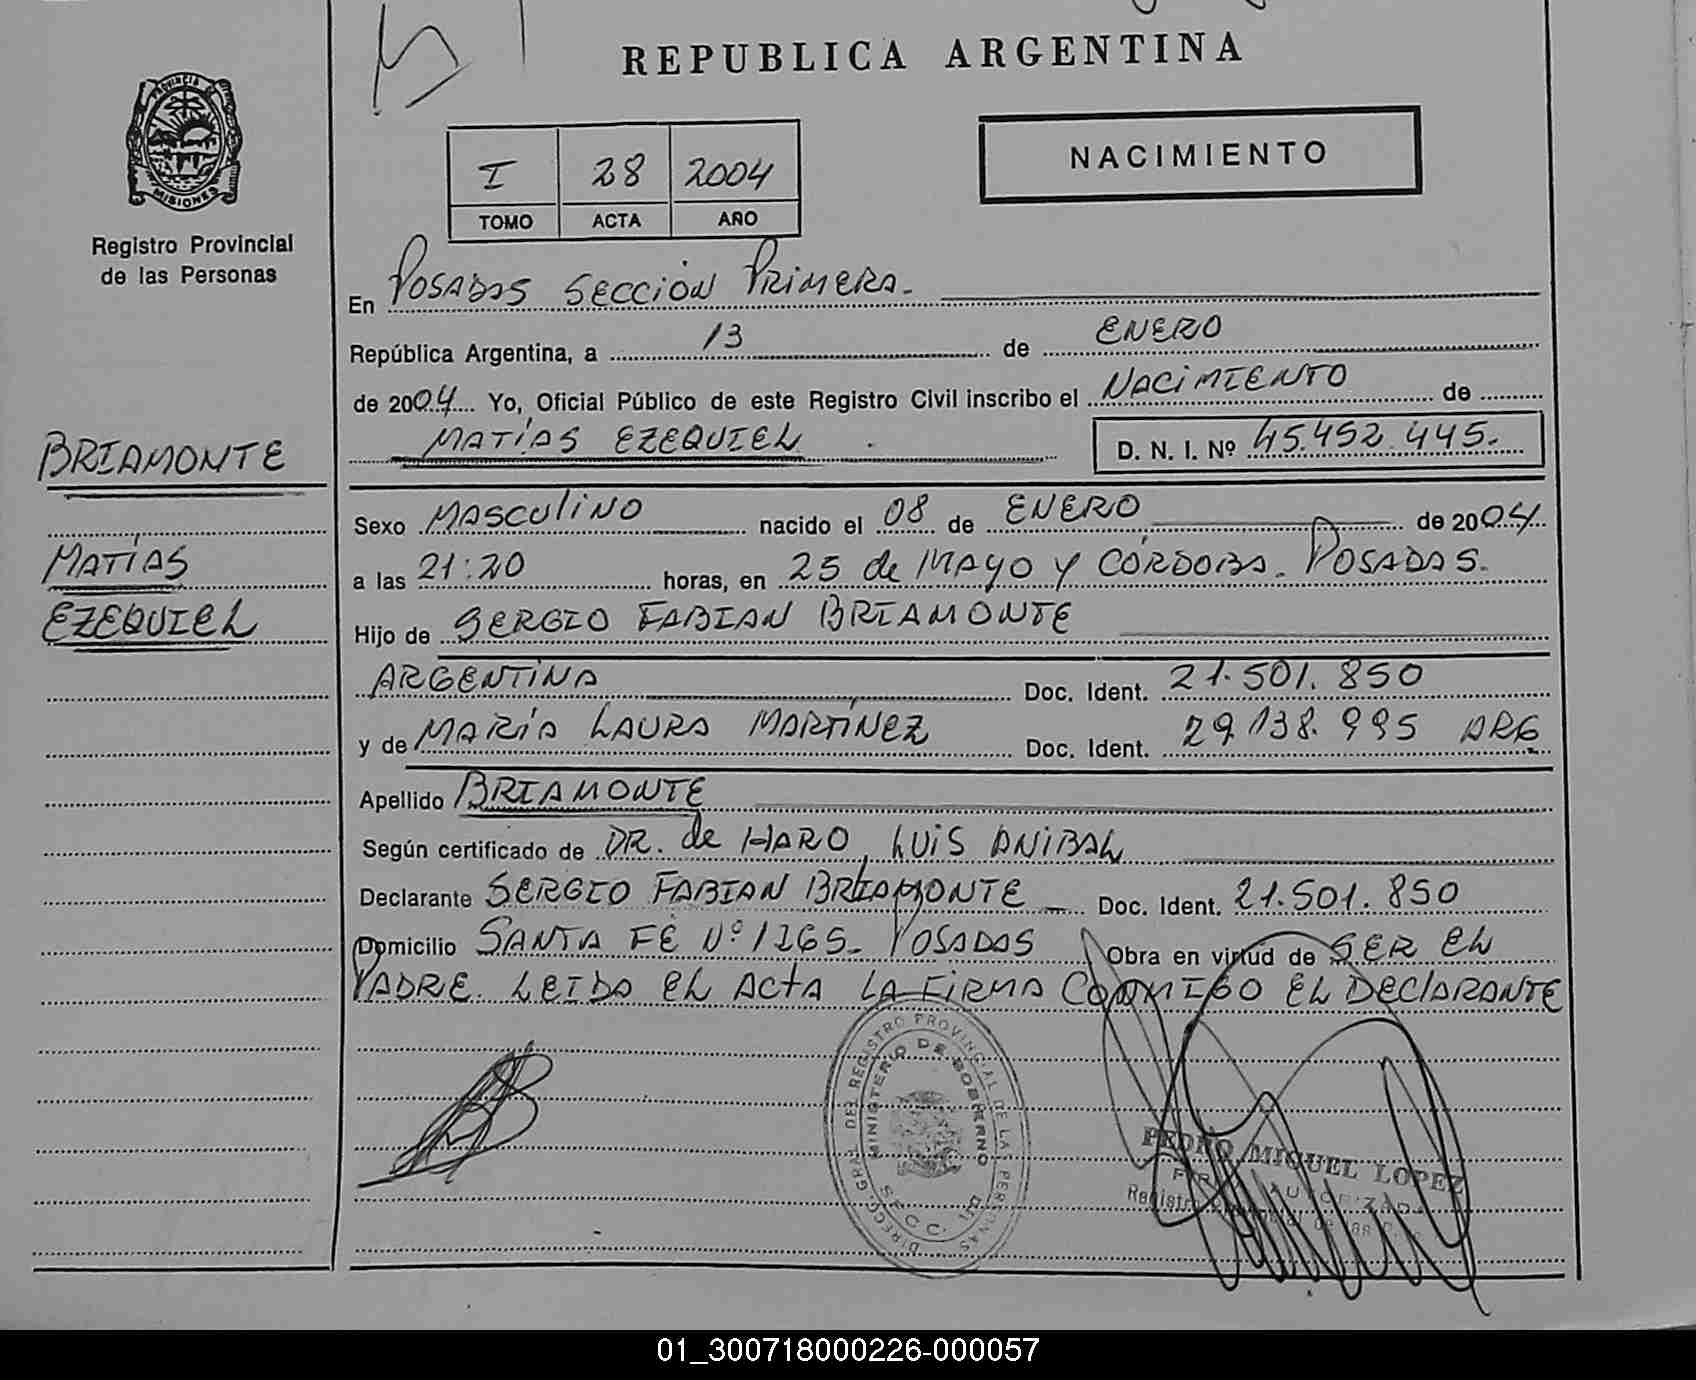 REPUBLICA ARGENTINA
PROVINCIA DE
MISIONES
Registro Provincial
de las Personas
I 28 2004
TOMO ACTA AÑO
NACIMIENTO
En POSADAS SECCION PRIMERA.
República Argentina, a 13 de ENERO
de 2004 Yo, Oficial Público de este Registro Civil inscribo el NACIMIENTO de
MATÍAS EZEQUIEL D. N. I. Nº 45.452.445.
BRIAMONTE
MATÍAS
EZEQUIEL
Sexo MASCULINO nacido el 08 de ENERO de 2004
a las 21:20 horas, en 25 de MAYO Y CÓRDOBA. POSADAS.
Hijo de SERGIO FABIAN BRIAMONTE
ARGENTINA Doc. Ident. 21.501.850
y de MARÍA LAURA MARTÍNEZ Doc. Ident. 29.138.995 ARG
Apellido BRIAMONTE
Según certificado de DR. de HARO, LUIS ANIBAL
Declarante SERGIO FABIAN BRIAMONTE Doc. Ident. 21.501.850
Domicilio SANTA FÉ Nº 1265. POSADAS Obra en virtud de SER EL
PADRE. LEIDA EL ACTA LA FIRMA CONMIGO EL DECLARANTE
DIRECC. GRAL. DEL REGISTRO PROVINCIAL DE LAS PERSONAS
MINISTERIO DE GOBIERNO
SECC.
PEDRO MIGUEL LOPEZ
AUTORIZADA
01_300718000226-000057